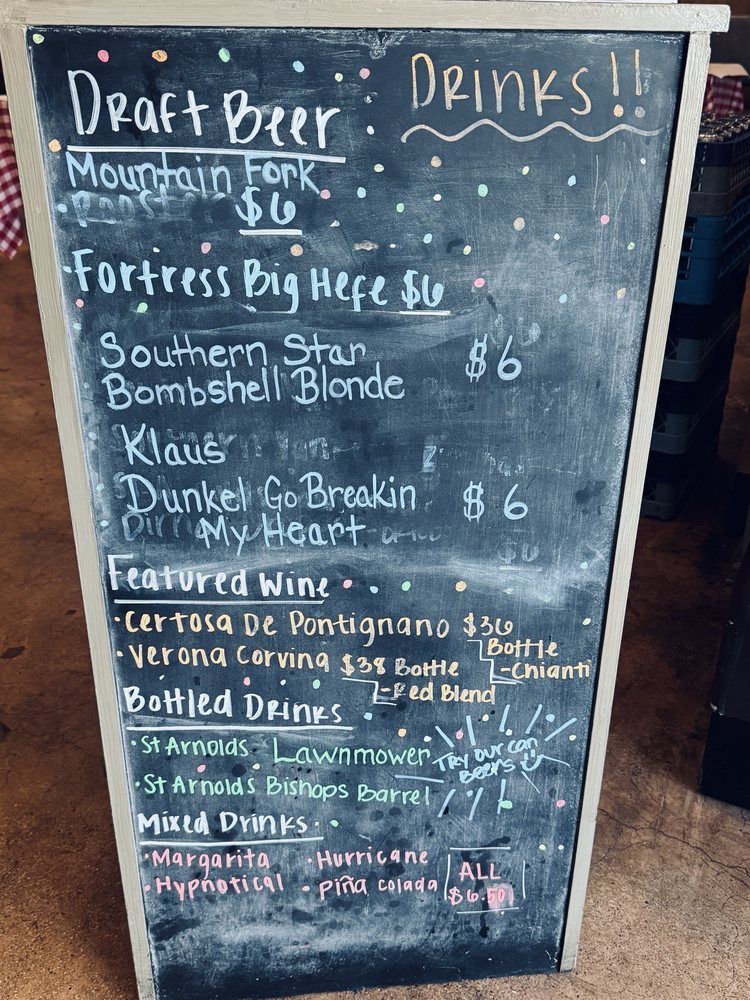 Drinks!!
Draft Beer
Mountain Fork
$6
·Fortress Big Hefe $6
Southern Star $6
Bombshell Blonde
Klaus
Dunkel Go Breakin $6
My Heart
Featured Wine
·Certosa De Pontignano $36
Bottle
-Chianti
·Verona Corvina $38 Bottle
-Red Blend
Bottled Drinks
·St Arnolds Lawnmower
Try our can
Beers
·St Arnolds Bishops Barrel
Mixed Drinks
·Margarita ·Hurricane ALL
·Hypnotical ·Piña colada $6.50